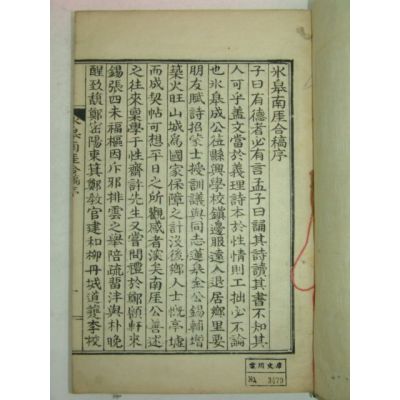 氷皐南厓合稿序
子曰有德者必有言孟子曰誦其詩讀其書不知其
人可乎盖文當於義理詩本於性情則工拙必不論
也氷皐成公莅縣興學校鎮邊服遠人退居鄉里要
朋友賦詩招蒙士授訓議與同志蓮皋金公錫輔增
築火旺山城爲國家保障之計沒後鄉人士慨亭墟
而成契帖可想平日之所觀感者深矣南厓公善述
之往來稟學于性齋許先生又嘗問禮於鄭顧軒來
錫張四未福樞因斥邪排雲之舉陪疏習沣與朴晩
醒致馥鄭密陽東箕鄭敎官建和柳丹城道夔李校
氷皐南厓合稿序
一
雲川文庫
No. 3473